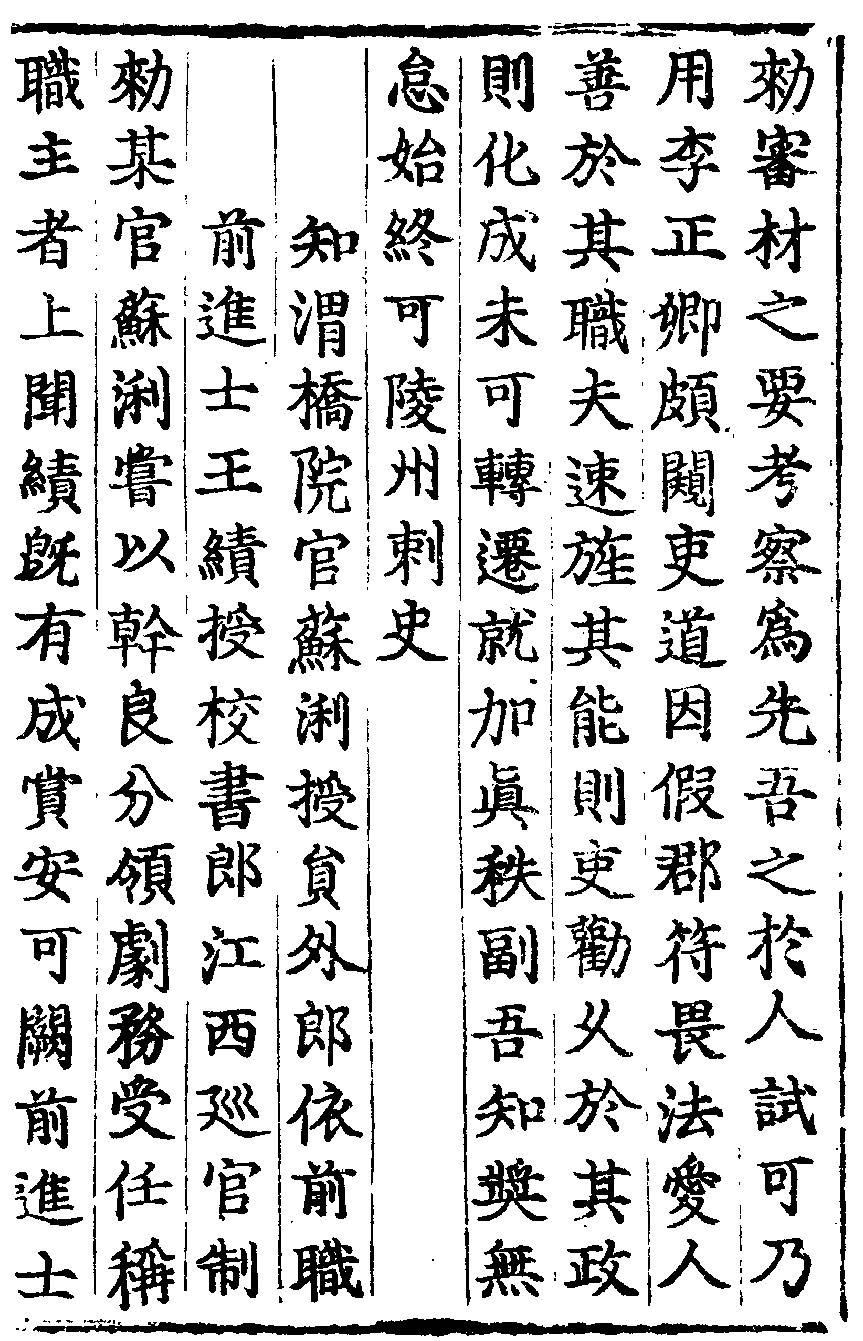 勑審材之要考察爲先吾之於人試可乃
用李正卿頗閱吏道因假郡符畏法愛人
善於其職夫速旌其能則吏勸久於其政
則化成未可轉遷就加眞秩副吾知奬無
怠始終可陵州刺史
知渭橋院官蘇浰授貟外郎依前職
前進士王績授校書郎江西廵官制
勑某官蘇浰嘗以幹良分領劇務受任稱
職主者上聞績旣有成賞安可闕前進士